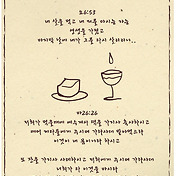 요6:53
내 살을 먹고 내 피를 마시는 자는
영생을 가졌고
마지막 날에 내가 그를 다시 살리리니..
마26:26
저희가 먹을때에 예수께서 떡을 가지사 축사하시고
떼어 제자들에게 주시며 가라사대 받아먹으라
이것이 내 몸이니라 하시고
또 잔을 가지사 사례하시고 저희에게 주시며 가라사대
너희가 다 이것을 마시라